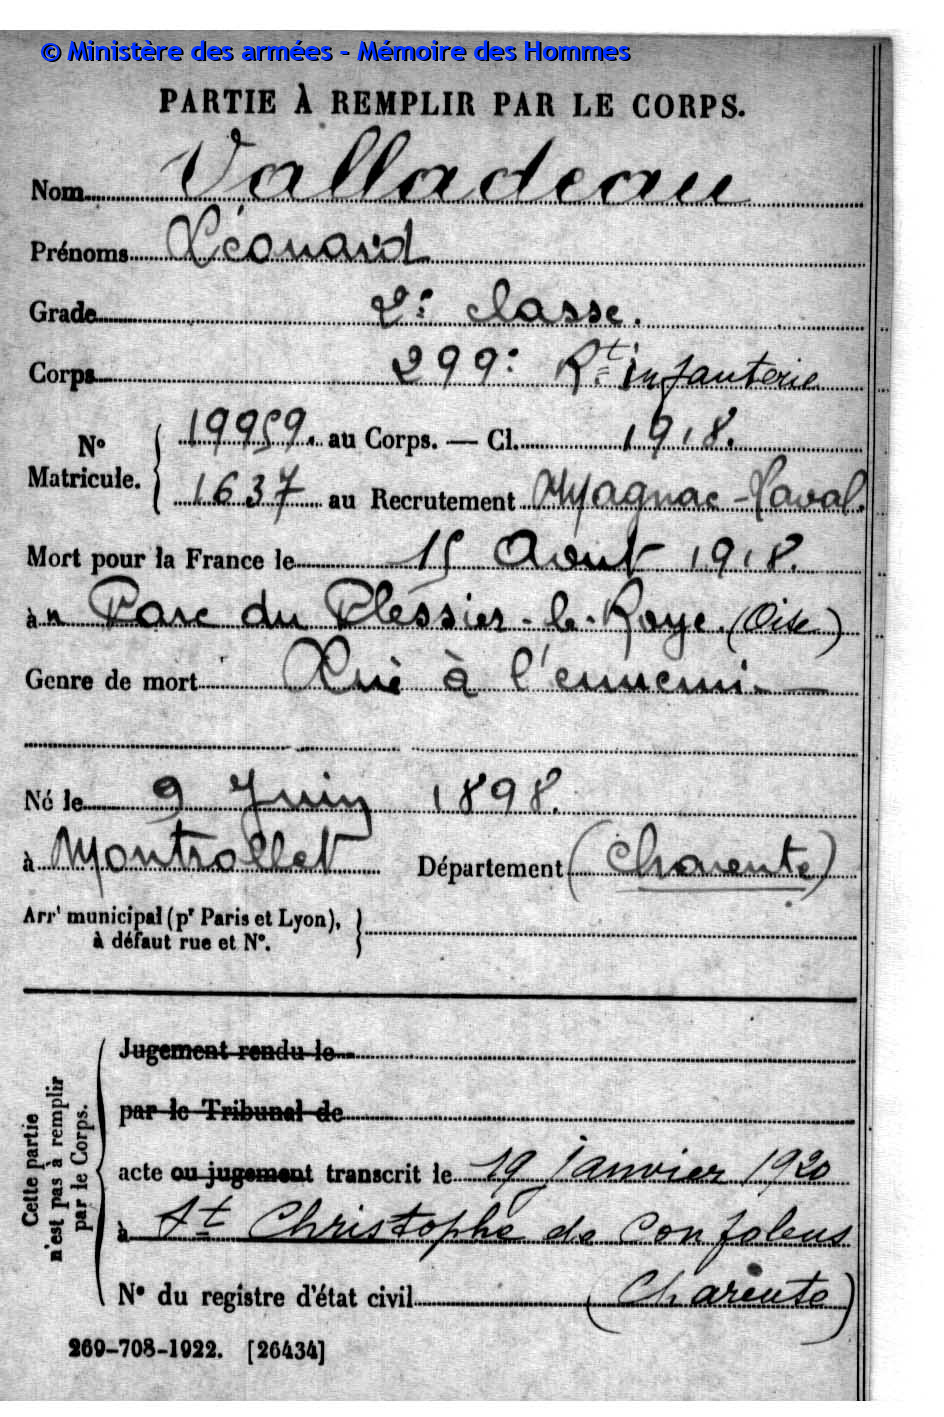 © Ministère des armées - Mémoire des Hommes
PARTIE À REMPLIR PAR LE CORPS.
Nom Valladeau
Prénoms Léonard
Grade 2e classe.
Corps 299e Rt infanterie
N° Matricule. { 19959. au Corps. — Cl. 1918.
1637 au Recrutement Magnac-Laval.
Mort pour la France le 15 Aout 1918.
à n Parc du Plessier-le-Roye (Oise)
Genre de mort Tué à l'ennemi. —
Né le 9 Juin 1898.
à Montrollet Département (Charente)
Arrt municipal (pr Paris et Lyon), }
à défaut rue et N°.
Cette partie
n'est pas à remplir
par le Corps.
Jugement rendu le
par le Tribunal de
acte ou jugement transcrit le 19 janvier 1920
à St Christophe de Confolens
N° du registre d'état civil (Charente)
269-708-1922. [26434]